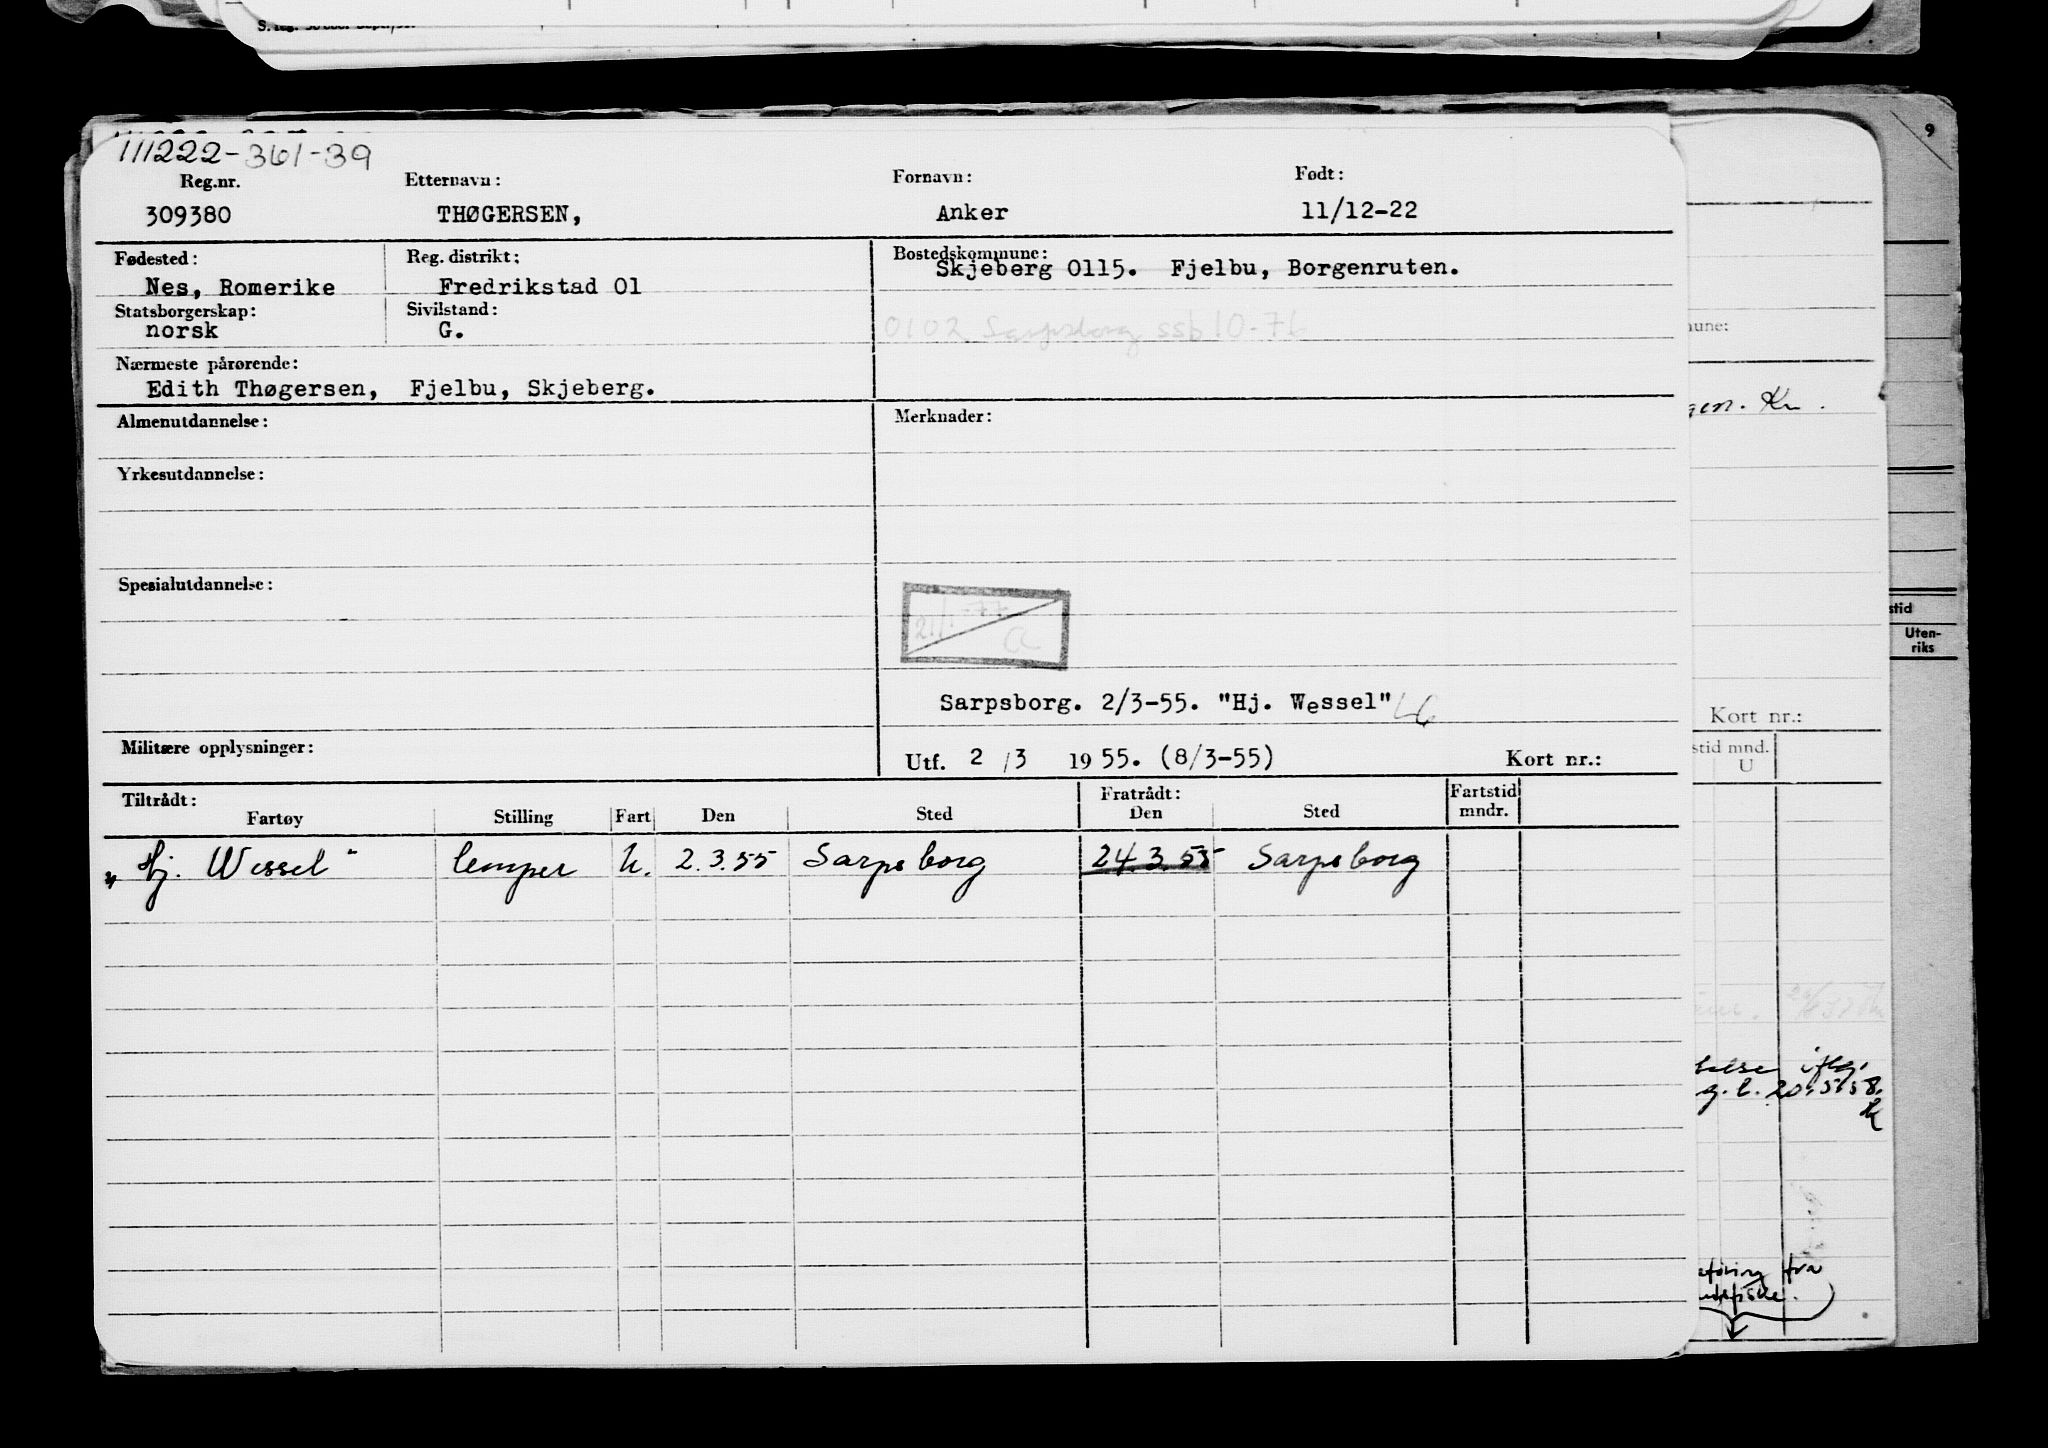 111222-361-39
Reg.nr. Etternavn: Fornavn: Født:
309380 THØGERSEN, Anker 11/12-22
Fødested: Reg. distrikt: Bostedskommune:
Nes, Romerike Fredrikstad 01 Skjeberg 0115. Fjelbu, Borgenruten.
Statsborgerskap: Sivilstand:
norsk G. 0102 Sarpsborg ssb 10-76
Nærmeste pårørende:
Edith Thøgersen, Fjelbu, Skjeberg.
Almenutdannelse: Merknader:
Yrkesutdannelse:
Spesialutdannelse:
Sarpsborg. 2/3-55. "Hj. Wessel"
Militære opplysninger: Utf. 2/3 1955. (8/3-55) Kort nr.:
Tiltrådt: Fratrådt: Fartstid
Fartøy Stilling Fart Den Sted Den Sted mndr.
„Hj. Wessel" lemper U. 2.3.55 Sarpsborg 24.3.55 Sarpsborg
9
gen. Kr.
stid
Uten-
riks
Kort nr.:
stid mnd.
U
g.l. 20.5.58.
fra